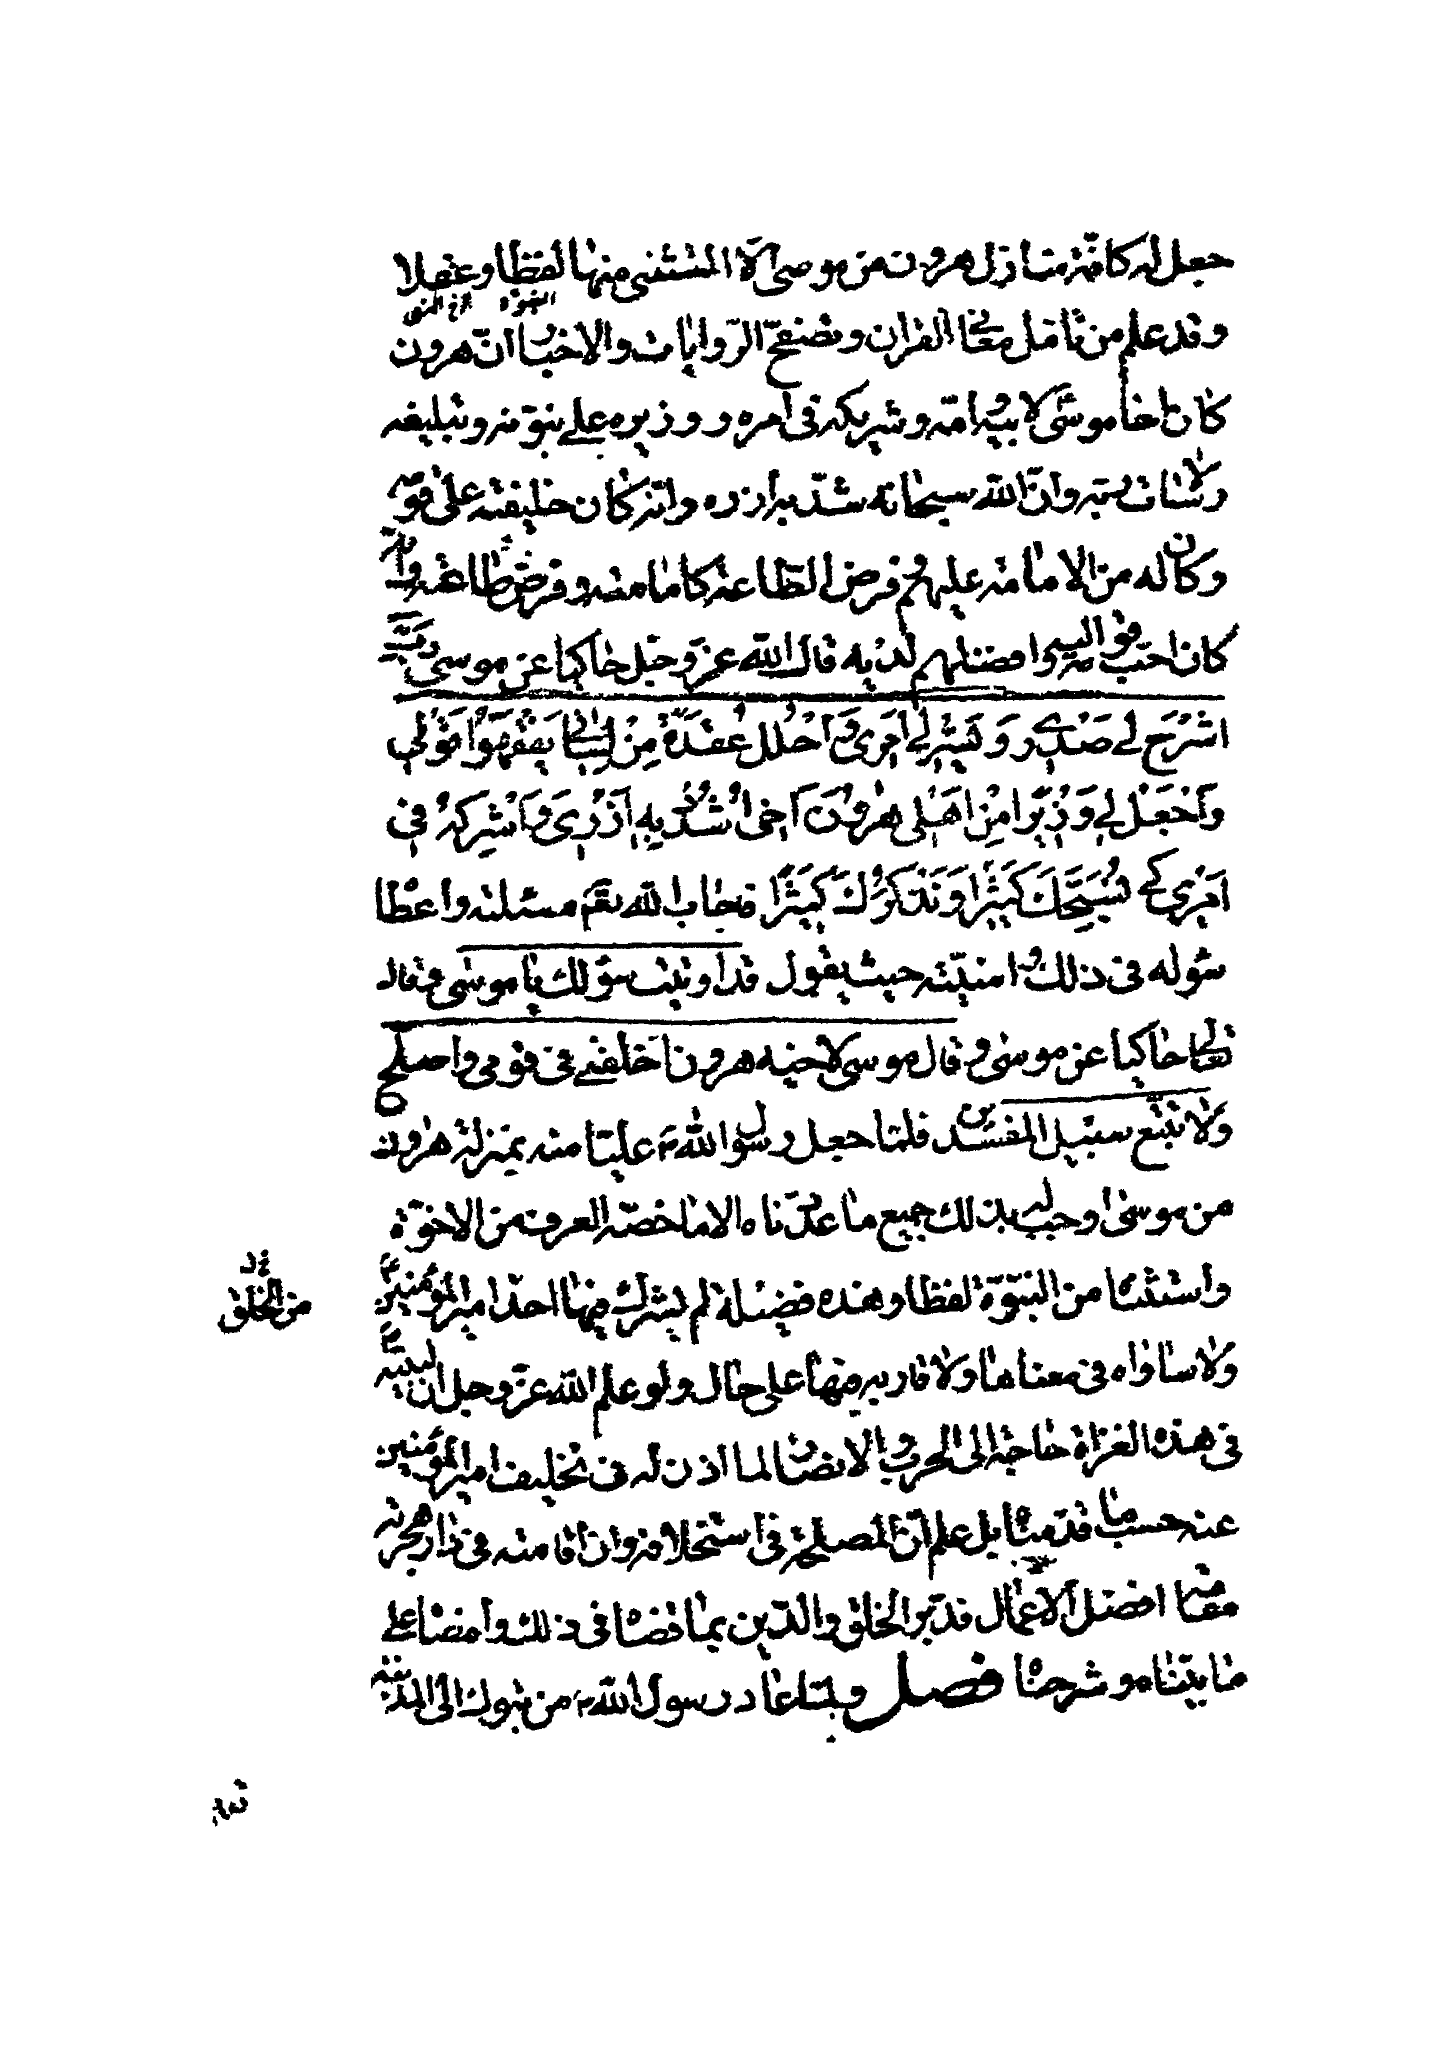 جعل له كافّة منازل هرون من موسى الّا المستثنى منها لفظا وعقلا
النبوّة
وقد علم من تأمّل معاني القران وتصفّح الرّوايات والاخبار انّ هرون
كان اخا موسى لابيه وامّه وشريكه فى امره ووزيره على نبوّته وتبليغه
رسالات ربّه وانّ الله سبحانه شدّ به ازره وانّه كان خليفته على قومه
وكان له من الامامة عليهم وفرض الطّاعة كامامته وفرض طاعته وانّه
كان احبّ قومه اليه وافضلهم لديه قال الله عزّ وجلّ حاكيا عن موسى ربّ
اشْرَحْ لي صَدْري وَيَسِّرْ لي اَمْري وَاحْلُلْ عُقْدَةً مِنْ لِسَاني يَفْقَهُوا قَوْلي
وَاجْعَلْ لي وَزيرًا مِنْ اَهْلي هٰرُونَ اَخي اشْدُدْ بِهِ اَزْري وَاَشْرِكْهُ في
اَمْري كَيْ نُسَبِّحَكَ كَثيرًا وَنَذْكُرَكَ كَثيرًا فاجاب الله تعم مسئلته واعطاه
سؤله فى ذلك وامنيّته حيث يقول قد اوتيت سؤلك يا موسى وقال
تعالى حاكيا عن موسى وقال موسى لاخيه هرون اخلفنى فى قومى واصلح
ولا تتّبع سبيل المفسدين فلمّا جعل رسول الله ص عليّا منه بمنزلة هرون
من موسى اوجب له بذلك جميع ما عدّدناه الا ما خصّه العرف من الاخوّة
واستثناه من النبوّة لفظا وهذه فضيلة لم يشرك فيها احد امير المؤمنين ع
من الخلق
ولا ساواه فى معناها ولا قاربه فيها على حال ولو علم الله عزّ وجلّ ان لنبيّه ع
فى هذه الغزاة حاجة الى الحرب والانصار لما اذن له فى تخليف امير المؤمنين
عنه حسب ما قدّمناه بل علم انّ المصلحة فى استخلافه وان اقامته فى دار هجرته
مقامه افضل الاعمال فدبّر الخلق والدّين بما قضاه فى ذلك وامضاه على
ما بيّنّاه وشرحناه فصل ولمّا عاد رسول الله ص من تبوك الى المدينة